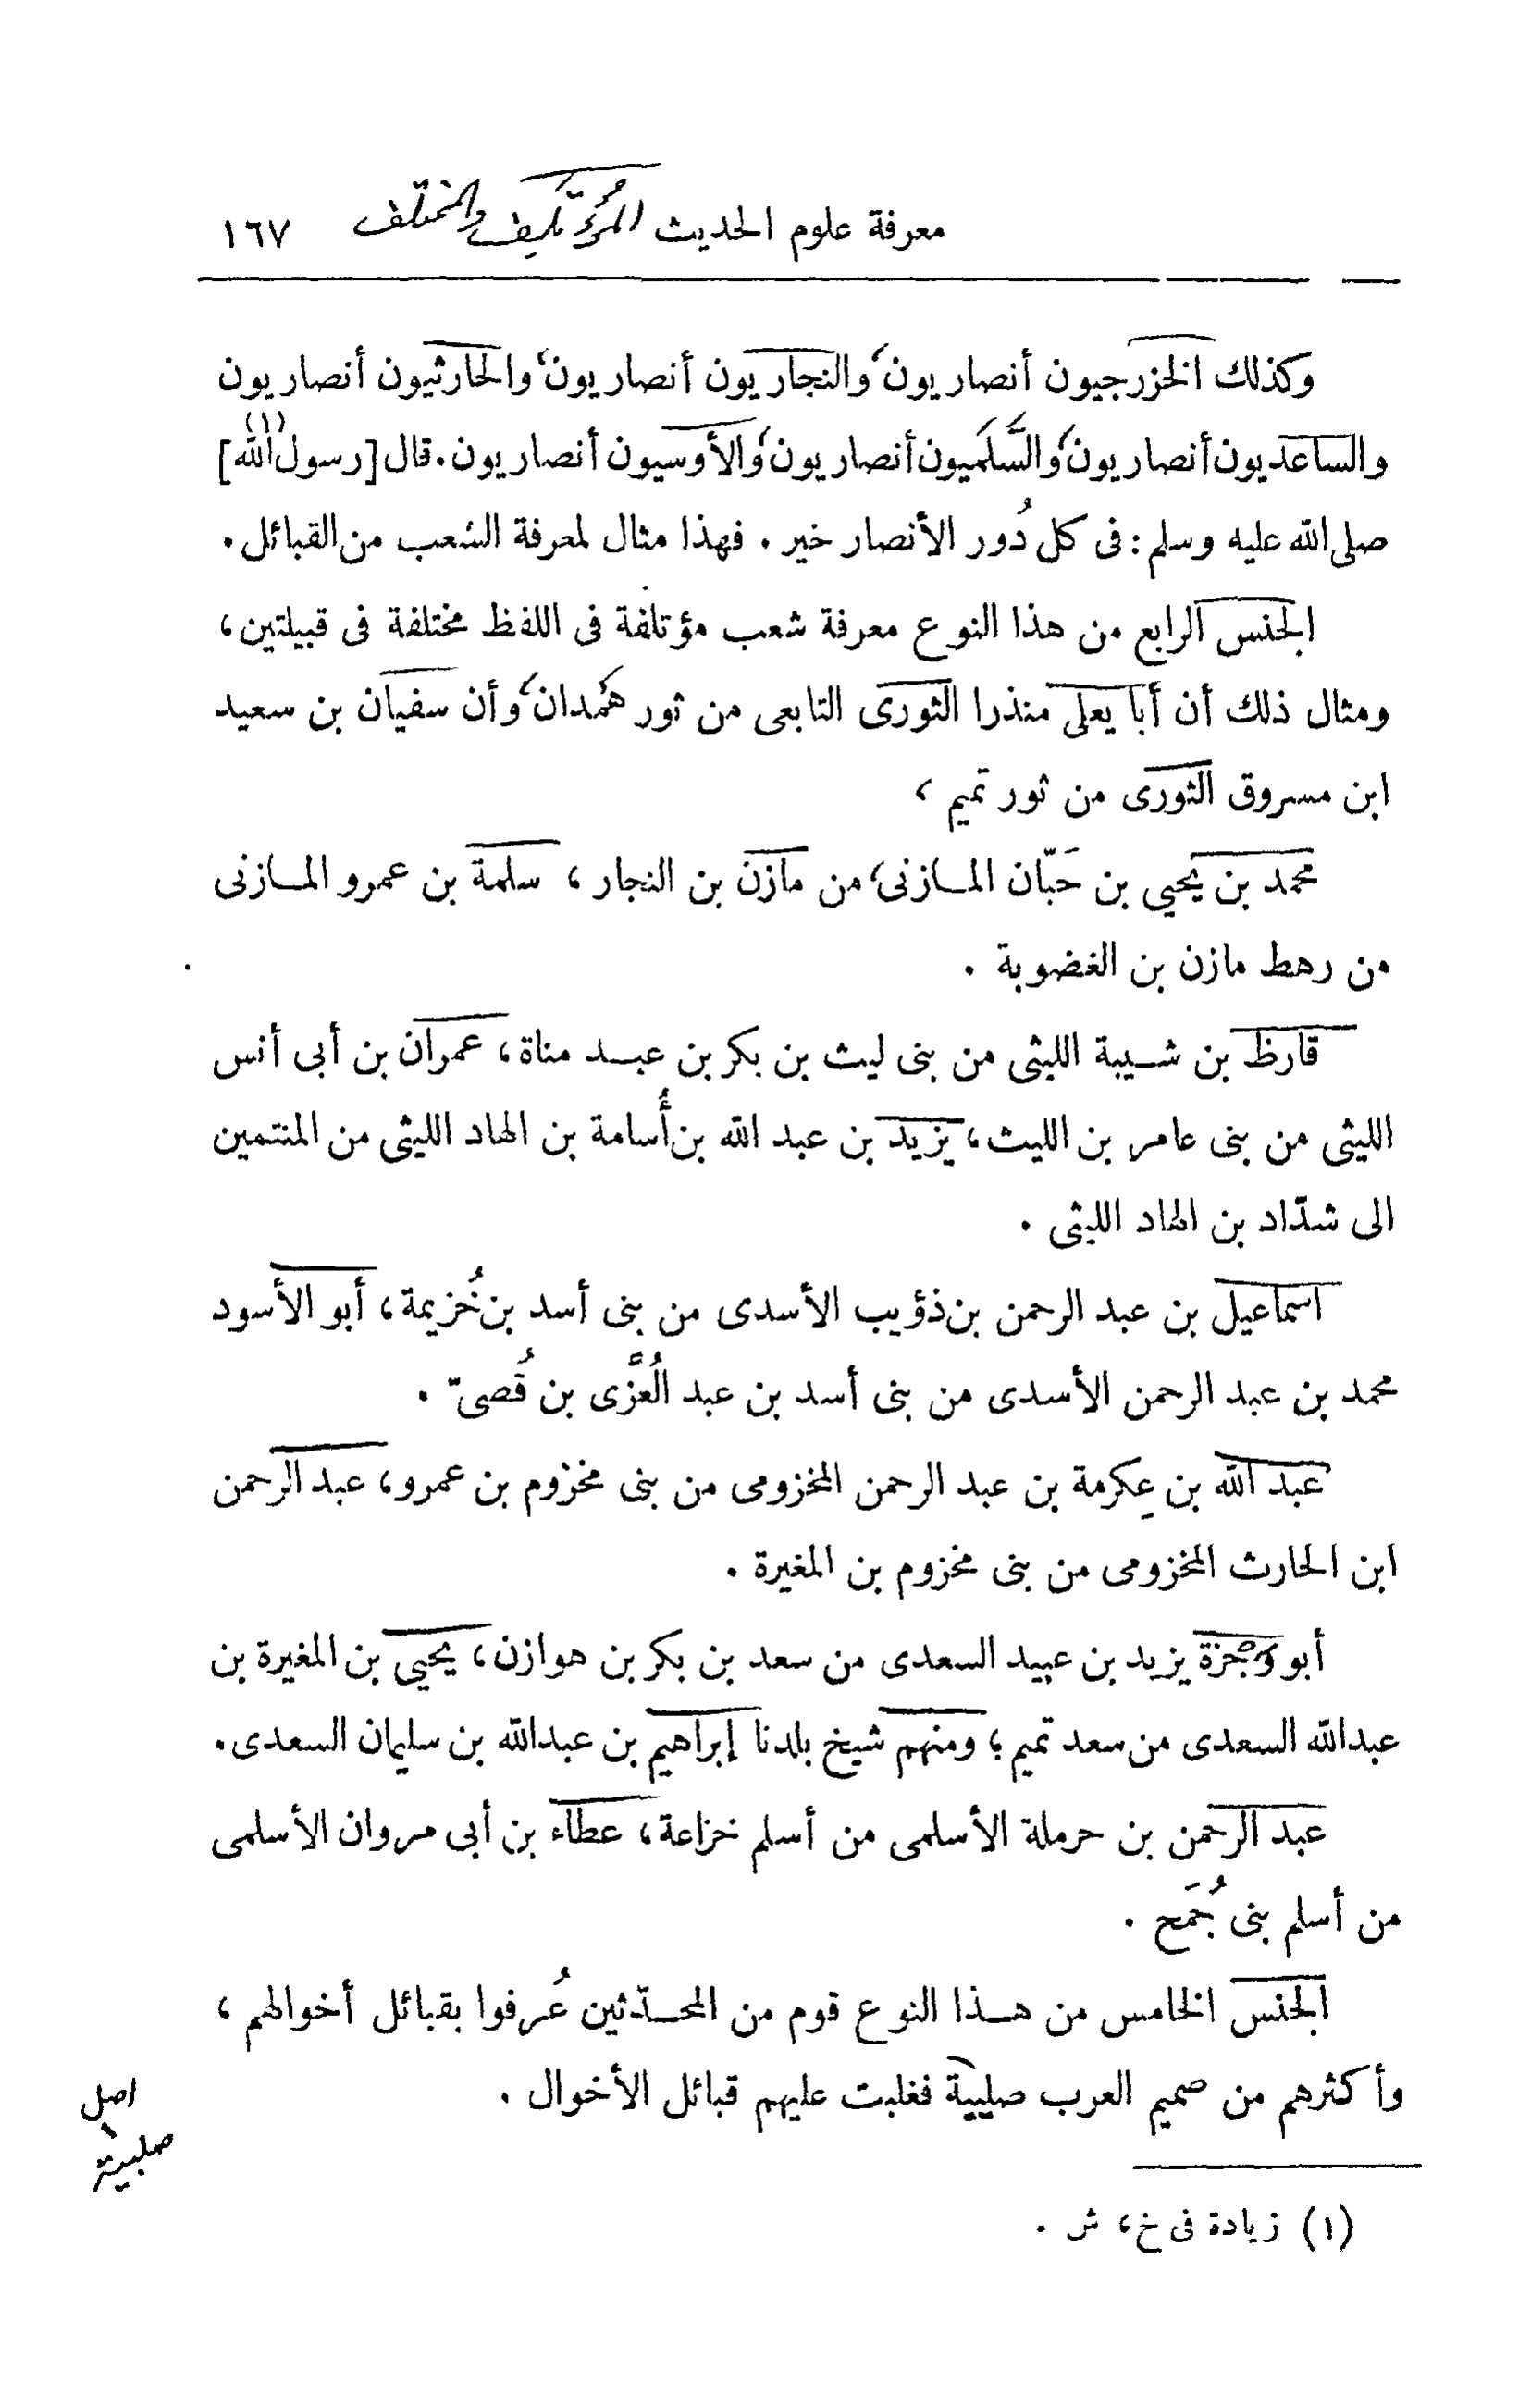 معرفة علوم الحديث المؤتلف والمختلف ١٦٧
وكذلك الخزرجيون أنصاريون، والنجاريون أنصاريون، والحارثيون أنصاريون
والساعديون أنصاريون، والسَّلَميون أنصاريون، والأوسيون أنصاريون. قال [رسول الله](١)
صلى الله عليه وسلم : فى كل دُور الأنصار خير . فهذا مثال لمعرفة الشعب من القبائل .
الجنس الرابع من هذا النوع معرفة شعب مؤتلفة فى اللفظ مختلفة فى قبيلتين ،
ومثال ذلك أن أبا يعلى منذرا الثورى التابعى من ثور همدان، وأن سفيان بن سعيد
ابن مسروق الثورى من ثور تميم ،
محمد بن يحيي بن حَبّان المازنى، من مازن بن النجار ، سلمة بن عمرو المازنى
من رهط مازن بن الغضوبة .
قارظ بن شيبة الليثى من بنى ليث بن بكر بن عبد مناة ، عمران بن أبى أنس
الليثى من بنى عامر بن الليث ، يزيد بن عبد الله بن أُسامة بن الهاد الليثى من المنتمين
الى شدّاد بن الهاد الليثى .
اسماعيل بن عبد الرحمن بن ذؤيب الأسدى من بنى أسد بن خُزيمة ، أبو الأسود
محمد بن عبد الرحمن الأسدى من بنى أسد بن عبد العُزَّى بن قُصىّ .
عبد الله بن عِكرمة بن عبد الرحمن المخزومى من بنى مخزوم بن عمرو ، عبد الرحمن
ابن الحارث المخزومى من بنى مخزوم بن المغيرة .
أبو وَجْزة يزيد بن عبيد السعدى من سعد بن بكر بن هوازن ، يحيي بن المغيرة بن
عبدالله السعدى من سعد تميم ؛ ومنهم شيخ بلدنا إبراهيم بن عبدالله بن سليمان السعدى .
عبد الرحمن بن حرملة الأسلمى من أسلم خزاعة ، عطاء بن أبى مروان الأسلمى
من أسلم بنى جُمَح .
الجنس الخامس من هذا النوع قوم من المحدّثين عُرفوا بقبائل أخوالهم ،
وأكثرهم من صميم العرب صليبية فغلبت عليهم قبائل الأخوال .
اصل
صلبية
(١) زيادة فى خ ، ش .